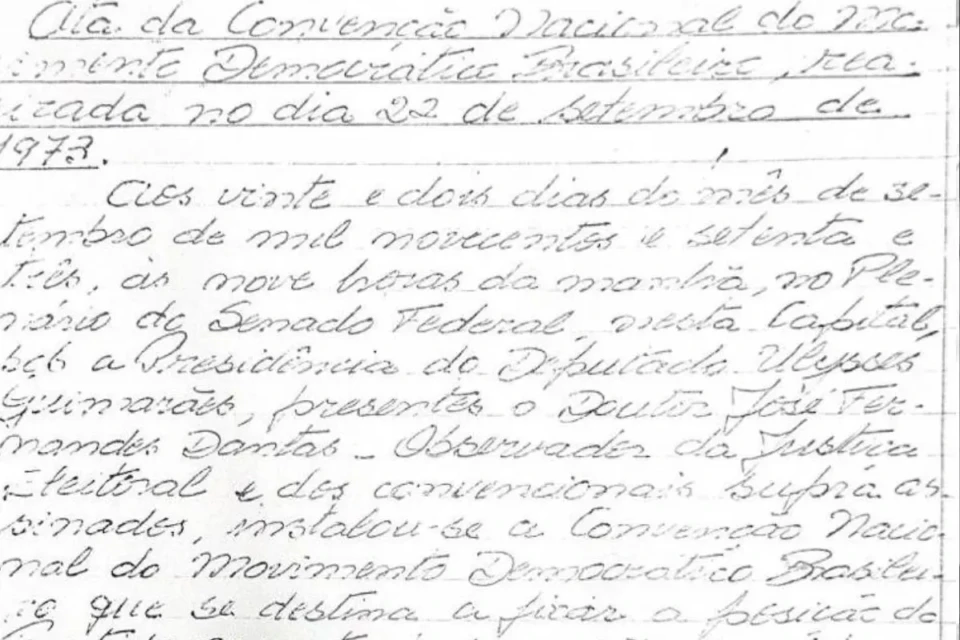 Ata da Convenção Nacional do Mo-
vimento Democrático Brasileiro, rea-
lizada no dia 22 de setembro de
1973.
Aos vinte e dois dias do mês de se-
tembro de mil novecentos e setenta e
três, às nove horas da manhã, no Ple-
nário do Senado Federal, nesta Capital,
sob a Presidência do Deputado Ulysses
Guimarães, presentes o Doutor José Fer-
nandes Dantas - Observador da Justiça
Eleitoral e dos convencionais supra as-
sinados, instalou-se a Convenção Nacio-
nal do Movimento Democrático Brasilei-
ro que se destina a fixar a posição do